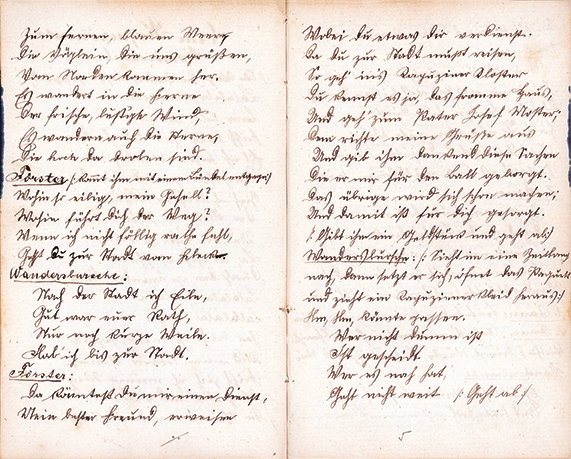 Zum fernen, blauen Meere
Die Vöglein, die uns grüßen,
Vom Norden kommen her.
Es wandert in die Ferne
Der frische, lustige Wind,
Es wandern auch die Sterne,
Die hoch da droben sind.
Förster /: kommt ihm mit einem Bündel entgegen:/
Wohin so eilig, mein Gesell?
Wohin führt dich der Weg?
Wenn ich nicht völlig rathe fehl,
Gehst du zur Stadt vom
Wanderbursche:
Nach der Stadt ich eile,
Gut war euer Rath,
Nur noch kurze Weile
Hab ich bis zur Stadt.
Förster:
Da könntest du mir einen Dienst,
Mein bester Freund, erweisen
Wobei du etwas dir verdienst.
Da du zur Stadt mußt reisen,
So geh' ins Kapuziner Kloster
Du kennst es ja, das fromme Haus,
Und geh' zum Pater Josef Moster,
Dem richte meine Grüße aus
Und gib ihm dankend diese Sachen
Die er mir für den Ball geborgt.
Das übrige wird sich schon machen;
Und damit ist für dich gesorgt.
/: Gibt ihm ein Geldstück und geht ab:/
Wanderbursche: /: Sieht im eine Zeitlang
nach, dann setzt er sich, öfnet das Paquett
und zieht ein Kapuzinerkleid heraus:/
Hm, Hm, könnte passen.
Wer nicht dumm ist
Ist gescheidt.
Wer es noch hat,
Geht nicht weit /: Geht ab:/
5